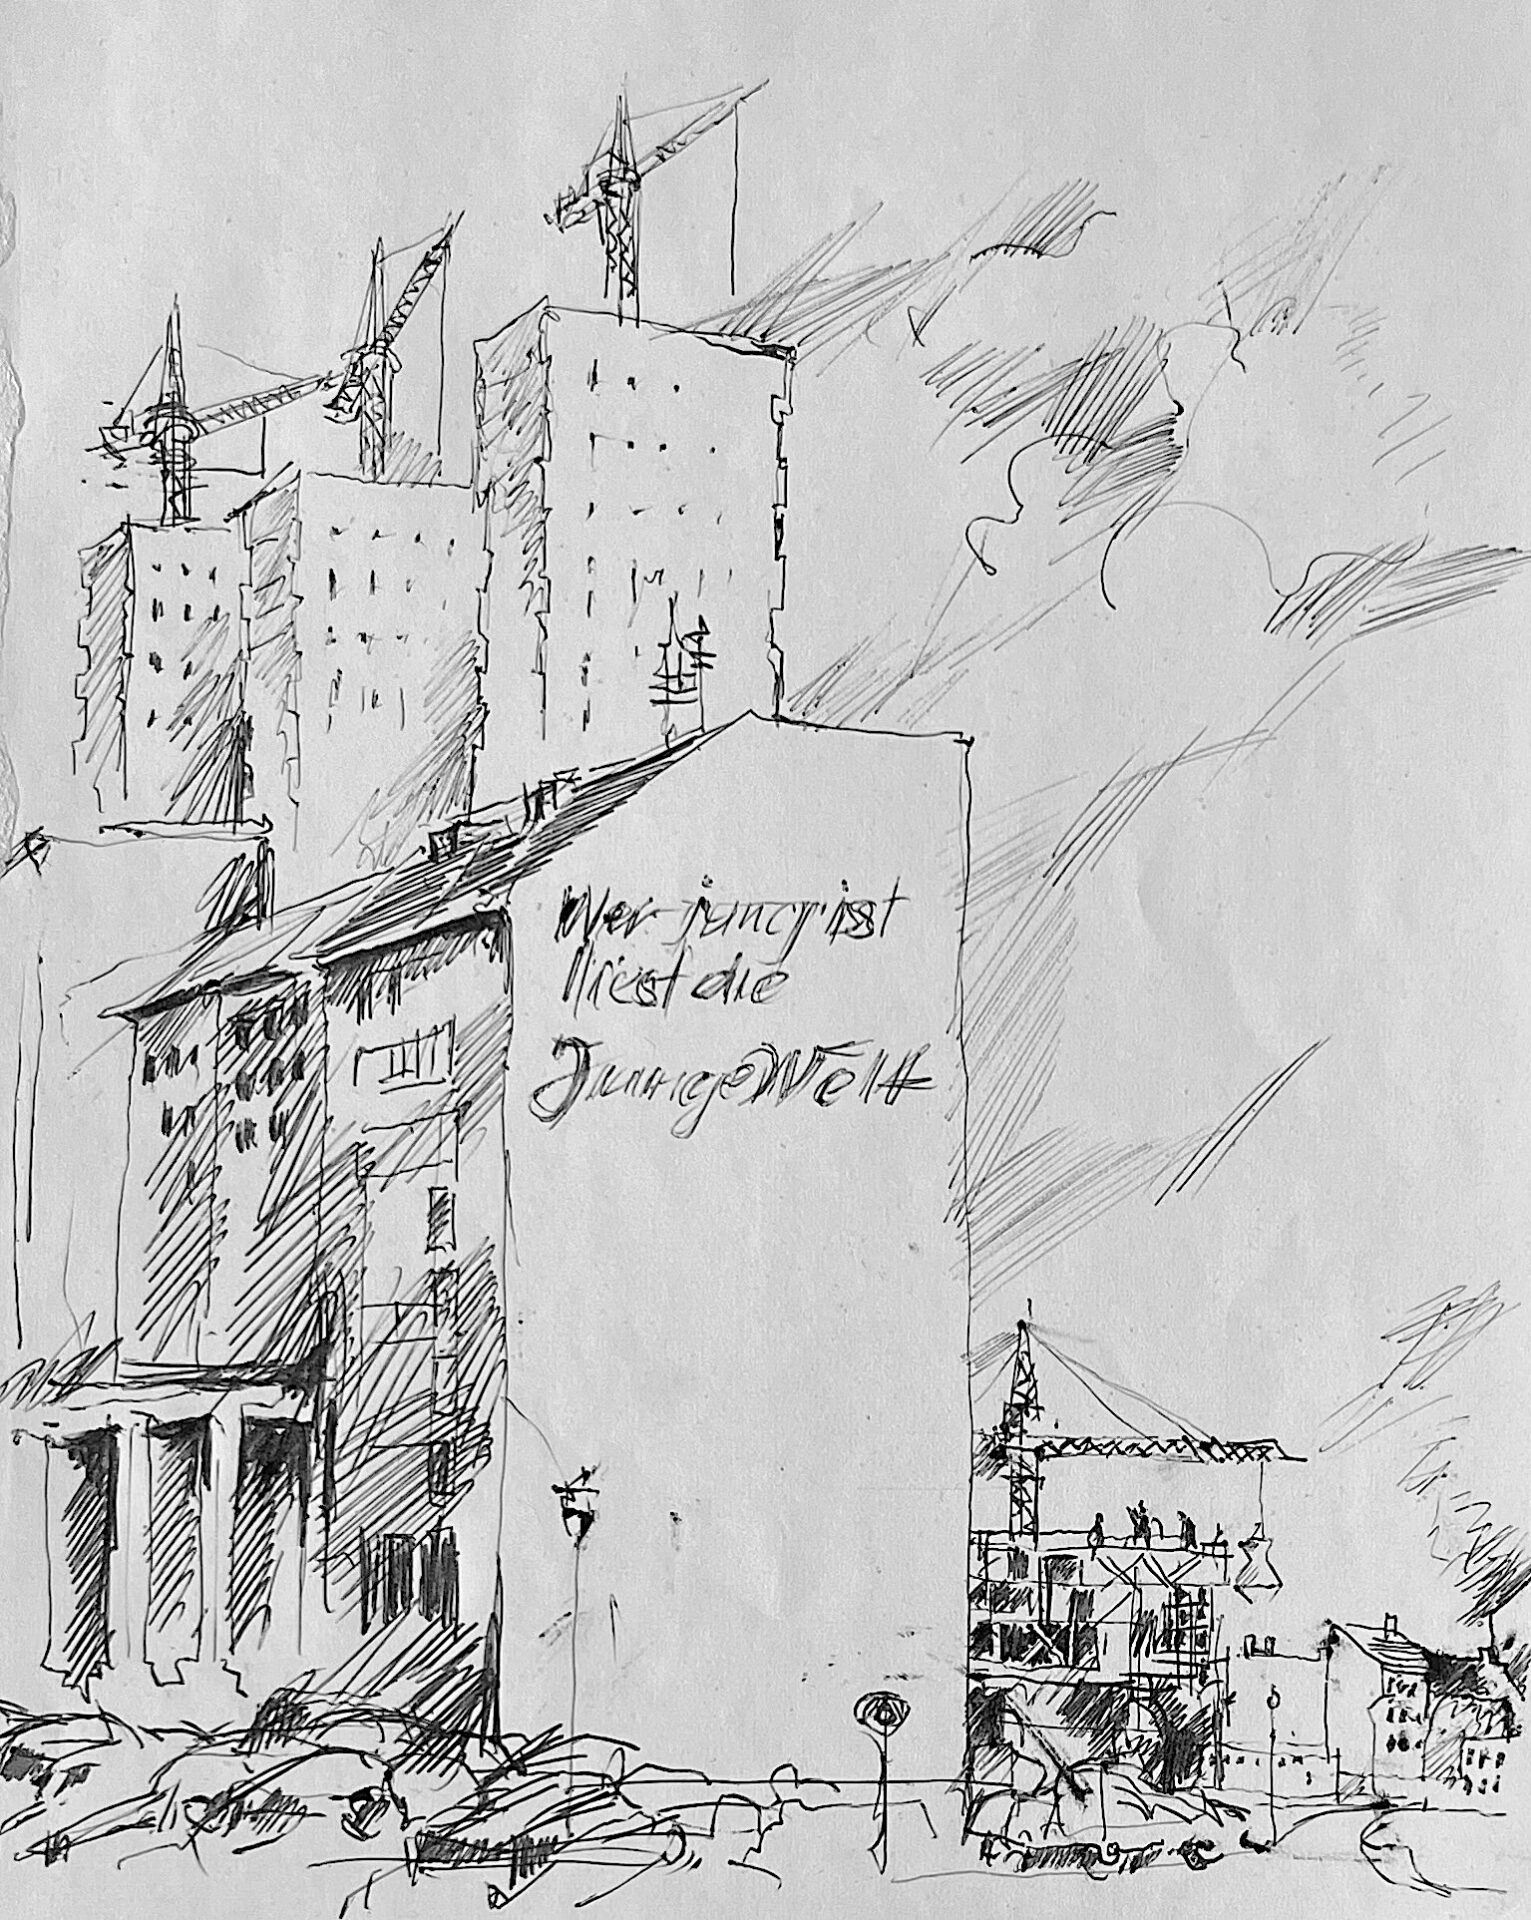 Wer jung ist
liest die
Junge Welt